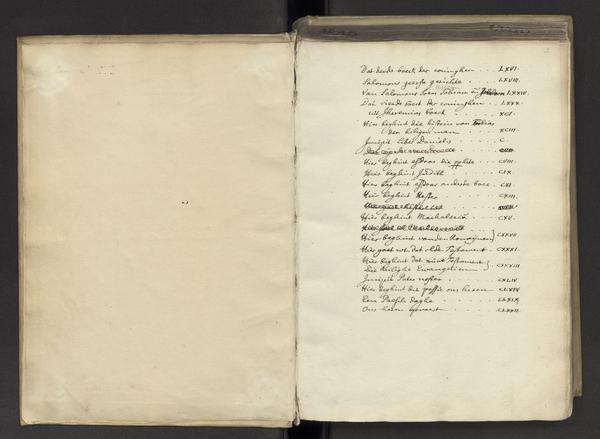 Dat derde boeck der coninghen . . . LXVI.
Salomons geeste gesichte . . . LXVIII.
Van Salomons Soen Robiam LXXIV.
Dat vierde boeck der coninghen . . LXXX.
Jheremias boeck . . . XCI.
Hier beghint die historie van Tobias
den heilighen man . . . XCIII
Incipit liber Danielis . . . C
Hier beghint esdras die . . . CVIII.
Hier beghint Judith . . . CIX.
Hier beghint esdras anderde boec . . CXI
Hier beghint Hester . . . CXIII.
Hier beghint Machabeeus . . . CXV.
Hier beghint van den Romeynen } CXXVII
Hier gaet wt dat olde Testament . CXXXI.
Hier beghint dat nieuwe Testament
Die Heilighe Ewangelien } CXXXIII
Incipit Pater noster . . . CXLIV.
Hier beghint die passie ons heren CLXIV
Een Paesch daghe . . . CLXIX.
Ons heren opvaert . . . CLXXII.